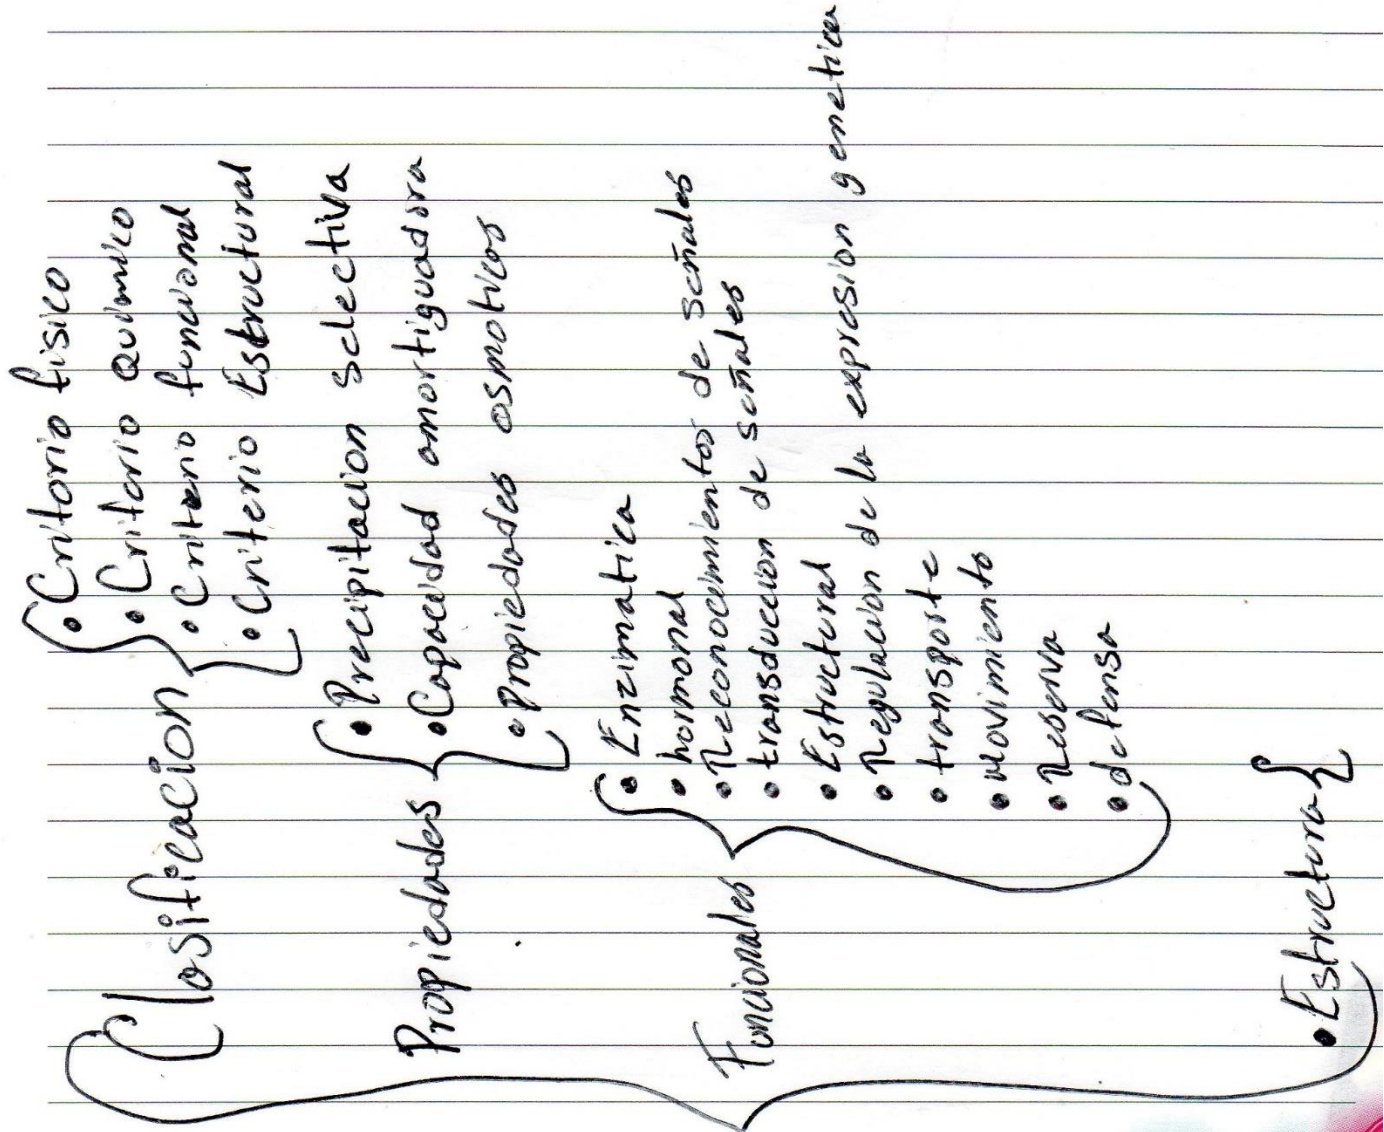 Clasificacion
• Criterio fisico
• Criterio Quimico
• Criterio funcional
• Criterio Estructural
Propiedades
• Precipitacion selectiva
• Capacidad amortiguadora
• Propiedades osmoticas
Funcionales
• Enzimatica
• hormonal
• Reconocimientos de señales
• transduccion de señales
• Estructural
• Regulacion de la expresion genetica
• transporte
• movimiento
• Reserva
• defensa
• Estructura